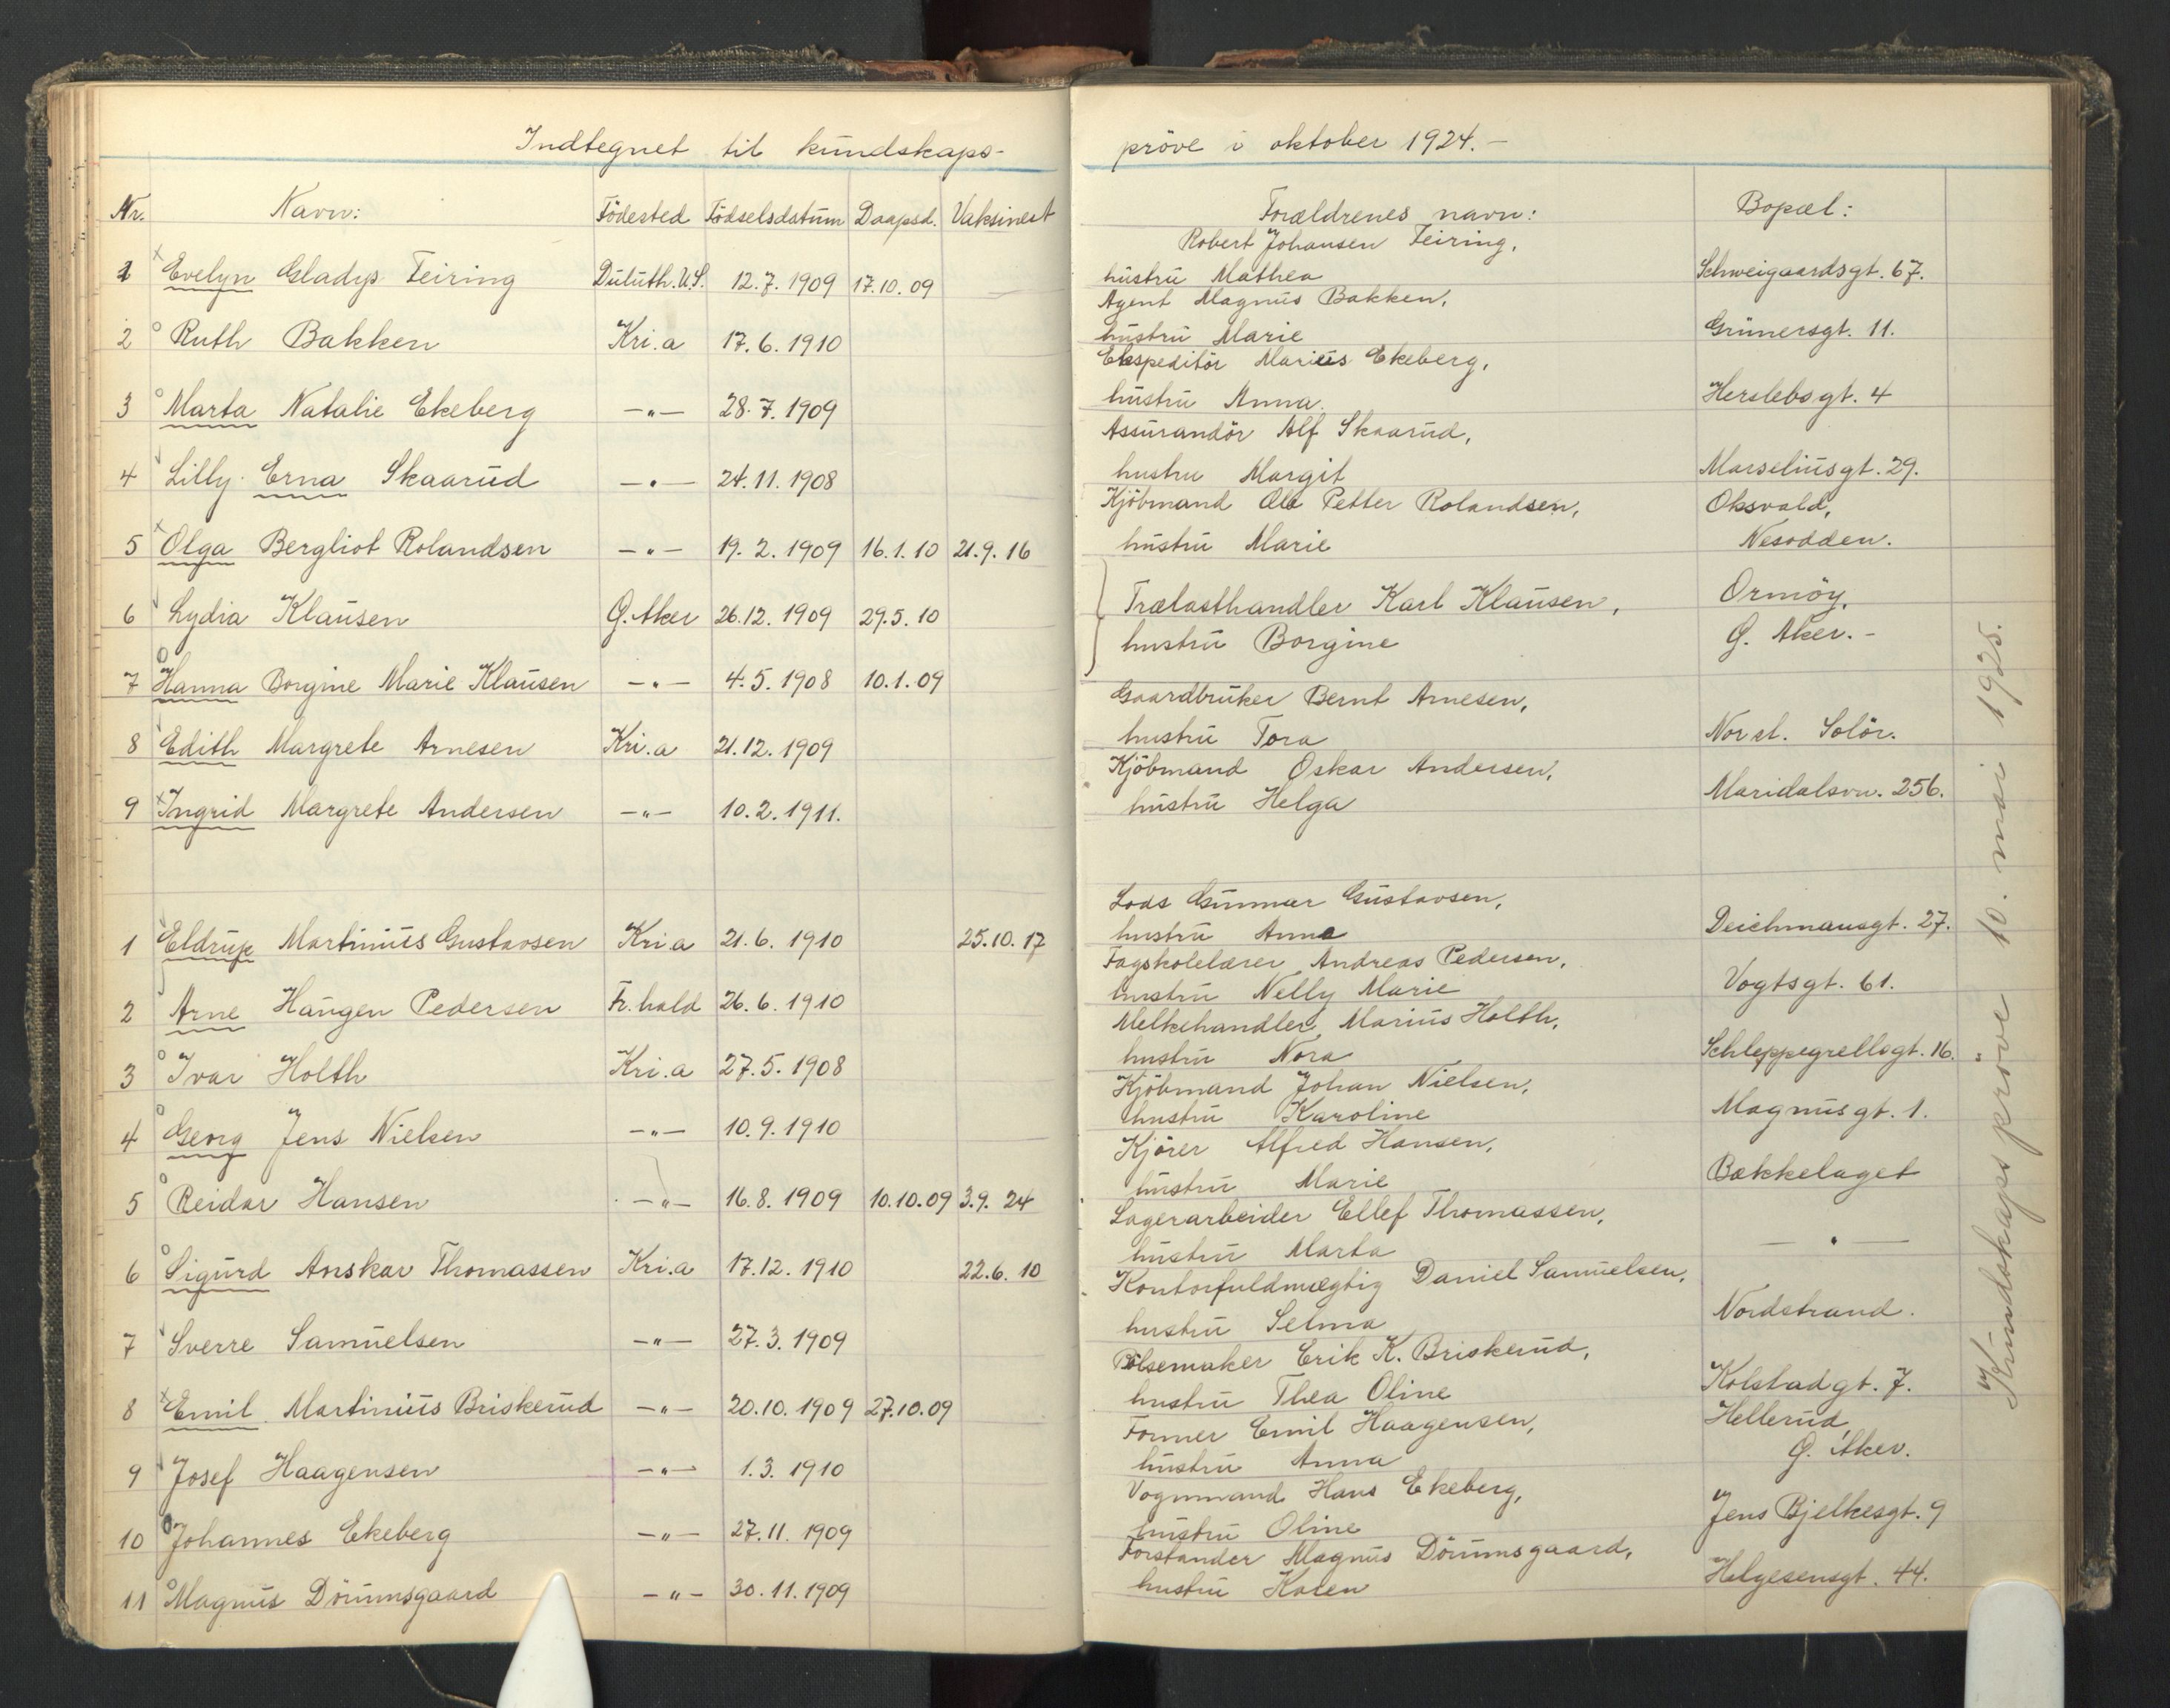 Indtegnet til kundskaps-
pröve i oktober 1924. -
Nr. Navn: Födested Födselsdatum Daapsd. Vaksinert Forældrenes navn: Bopæl:
1 Evelyn Gladys Feiring Duluth. U.S. 12.7.1909 17.10.09 — Robert Johansen Feiring, Schweigaardsgt. 67.
hustru Mathea
2 Ruth Bakken Kri.a 17.6.1910 Agent Magnus Bakken, Grünersgt. 11.
hustru Marie
3 Marta Natalie Ekeberg —"— 28.7.1909 Ekspeditör Marius Ekeberg, Herslebsgt. 4
hustru Anna.
4 Lilly Erna Skaarud —"— 24.11.1908 Assurandör Alf Skaarud, Marseliusgt. 29.
hustru Margit
5 Olga Bergliot Rolandsen —"— 19.2.1909 16.1.10 21.9.16 Kjöbmand Ole Petter Rolandsen, Oksvald,
hustru Marie Nesodden.
6 Lydia Klausen Ö. Aker 26.12.1909 29.5.10 Trælasthandler Karl Klausen, Ormöy,
hustru Borgine Ö. Aker. -
7 Hanna Borgine Marie Klausen —"— 4.5.1908 10.1.09
8 Edith Margrete Arnesen Kri.a 21.12.1909 Gaardbruker Bernt Arnesen, Nor st. Solör.
hustru Tora
9 Ingrid Margrete Andersen —"— 10.2.1911. Kjöbmand Oskar Andersen, Maridalsvn. 256.
hustru Helga
1 Eldrup Martinius Gustavsen Kri.a 21.6.1910 25.10.17 Lods Gunnar Gustavsen, Deichmansgt. 27.
hustru Anna
2 Arne Haugen Pedersen Fr.hald 26.6.1910 Fagskolelærer Andreas Pedersen, Vogtsgt. 61.
hustru Nelly Marie
3 Ivar Holth Kri.a 27.5.1908 Melkehandler Marius Holth, Schleppegrellsgt. 16.
hustru Nora
4 Georg Jens Nielsen —"— 10.9.1910 Kjöbmand Johan Nielsen, Magnusgt. 1.
hustru Karoline
5 Reidar Hansen —"— 16.8.1909 10.10.09 3.9.24 Kjörer Alfred Hansen, Bækkelaget
hustru Marie
6 Sigurd Anskar Thomassen Kri.a 17.12.1910 22.6.10 Lagerarbeider Ellef Thomassen, —"—
hustru Marta
7 Sverre Samuelsen —"— 27.3.1909 Kontorfuldmægtig Daniel Samuelsen, Nordstrand.
hustru Selma
8 Emil Martinius Briskerud —"— 20.10.1909 27.10.09 Pölsemaker Erik K. Briskerud, Kolstadgt. 7.
hustru Thea Oline
9 Josef Haagensen —"— 1.3.1910 Former Emil Haagensen, Hellerud,
hustru Anna Ö. Aker.
10 Johannes Ekeberg —"— 27.11.1909 Vognmand Hans Ekeberg, Jens Bjelkesgt. 9
hustru Oline
11 Magnus Dörumsgaard —"— 30.11.1909 Forstander Magnus Dörumsgaard, Helgesensgt. 44.
hustru Karen
Kundskaps pröve 10. mai 1925.